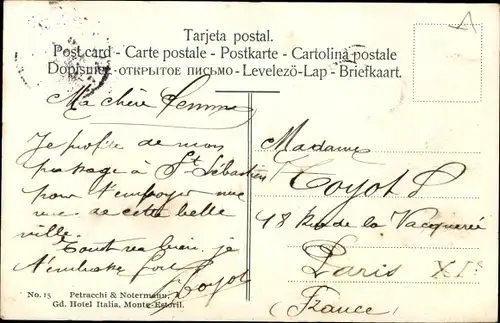 Tarjeta postal.
Post card - Carte postale - Postkarte - Cartolina postale
Dopisnice - ОТКРЫТОЕ ПИСЬМО - Levelező-Lap - Briefkaart.
Ma chère femme
Je profite de mon
passage à St Sébastien
pour t'envoyer une
vue de cette belle
ville.
Tout va bien. je
t'embrasse fort
Toyot
Madame
Toyot
48 Rue de la Vacquerie
Paris XIe
France
No. 15 Petracchi & Notermann,
Gd. Hotel Italia, Monte-Estoril.